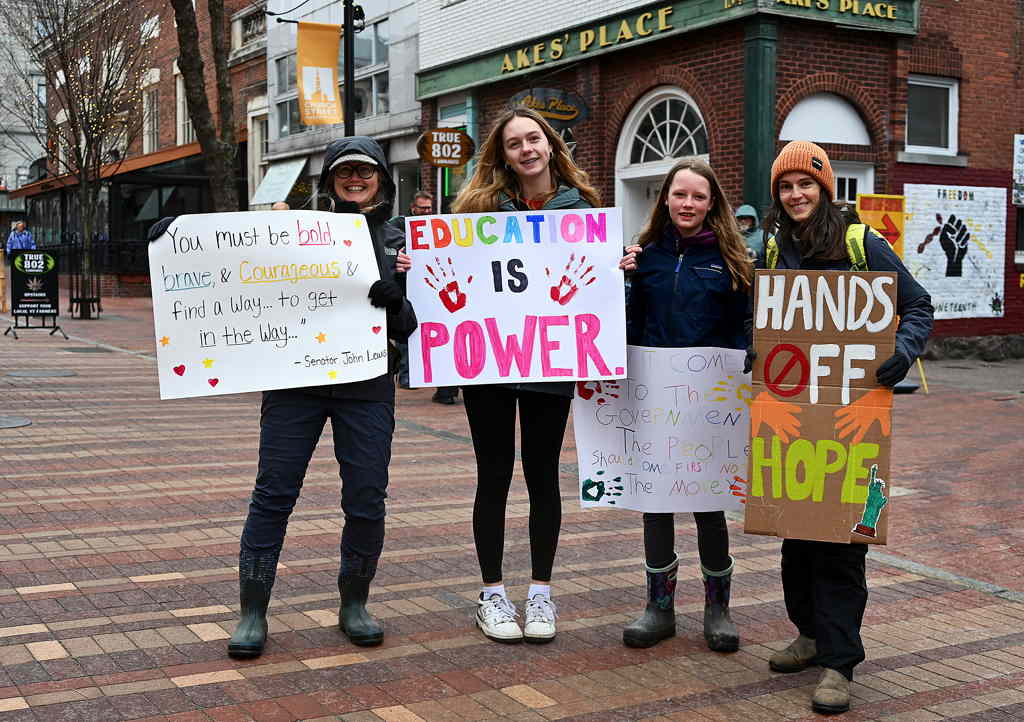 AKES' PLACE
AKES PLACE
Akes Place
CHURCH
STREET
TRUE
802
TRUE
802
CANNABIS
UPSTAIRS
SUPPORT YOUR
LOCAL VT FARMERS
FREEDOM
JUNETEENTH
You must be bold,
brave, & Courageous &
find a way... to get
in the way..."
- Senator John Lewis
EDUCATION
IS
POWER.
COME
TO The
GOVERNMEN
The PeoPLe
ShouLD OMe FIRST NO
The MoNey
HANDS
OFF
HOPE